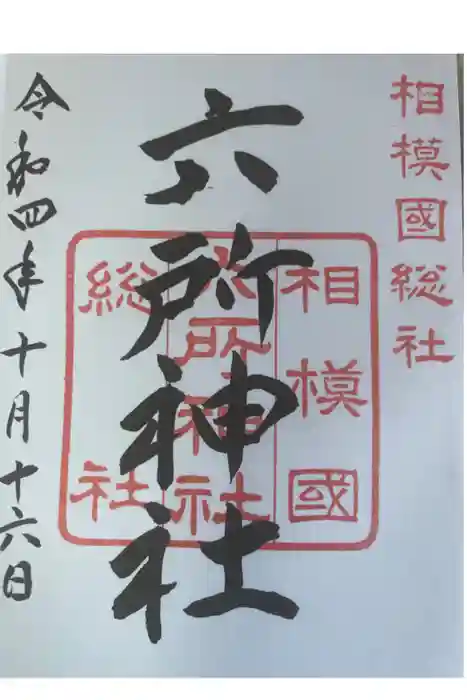 相模國総社
相模國
六所神社
総社
六所神社
令和四年十月十六日